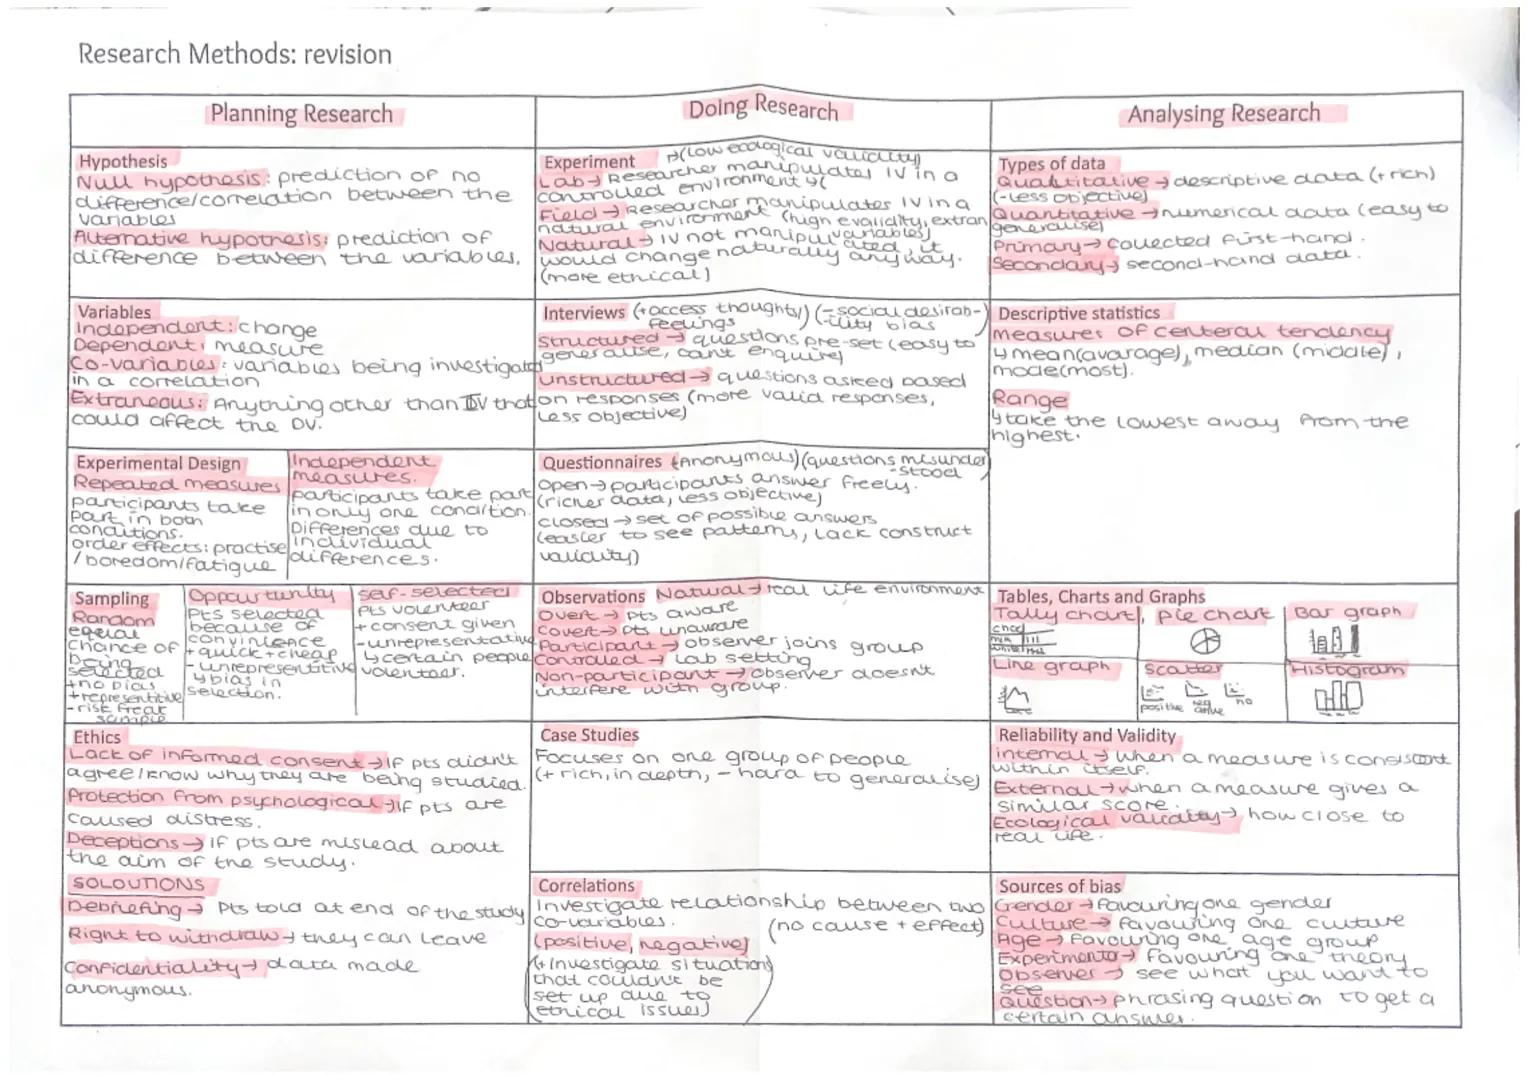 Research Methods: revision
Planning Research
Hypothesis
Null hypothesis: prediction of no
difference/correlation between the
variables
Alternative hypothesis: prediction of
difference between the variables.
Variables
Independent: change
Dependent: measure
Co-variables: variables being investigated
in a correlation
Extraneous: Anything other than IV that
could affect the DV.
Experimental Design
Repeated measures
participants take
part in both
conditions.
order effects: practise
/boredom/fatigue
Independent
measures.
participants take part
in only one condition.
Differences due to
individual
differences.
Sampling
Random
equal
chance of
being
selected
+no bias
+representitive
-risk freak
sample
Oppourtunity
Pts selected
because of
convinience
+quick+cheap
-unrepresentitive
↳bias in
selection.
self-selected
Pts volenteer
+consent given
-unrepresentative
↳certain people
volenteer.
Ethics
Lack of informed consent→if pts didn't
agree/know why they are being studied.
Protection from psychological→if pts are
caused distress.
Deceptions→if pts are mislead about
the aim of the study.
SOLOUTIONS
Debriefing→Pts told at end of the study
Right to withdraw→they can leave
Confidentiality→data made
anonymous.
Doing Research
Experiment →(low ecological validity)
Lab→Researcher manipulates IV in a
controlled environment
Field→Researcher manipulates IV in a
natural environment (high evalidity, extran
variables)
Natural→IV not manipulated, it
would change naturally anyway.
(more ethical)
Interviews (+access thoughts/ feelings) (-social desirab-
ility bias)
Structured→questions pre-set (easy to
generalise, can't enquire)
Unstructured→questions asked based
on responses (more valid responses,
less objective)
Questionnaires (Anonymous)(questions misunder
-stood)
Open→participants answer freely.
(richer data, less objective)
closed→set of possible answers
(easier to see patterns, lack construct
validity)
Observations Natural→real life environment
Overt→pts aware
Covert→pts unaware
Participant→observer joins group
Controlled→Lab setting
Non-participant→observer doesn't
interfere with group.
Case Studies
Focuses on one group of people
(+rich, in depth, -hard to generalise)
Correlations
Investigate relationship between two
co-variables.
(no cause+effect)
(positive, negative)
(+Investigate situations
that couldn't be
set up due to
ethical issues)
Analysing Research
Types of data
Qualitative→descriptive data (+rich)
(-less objective)
Quantitative→numerical data (easy to
generalise)
Primary→collected first-hand.
Secondary→second-hand data.
Descriptive statistics
Measures of centeral tendency
↳mean(avarage), median (middle),
mode(most).
Range
↳take the lowest away from the
highest.
Tables, Charts and Graphs
Tally chart, pie chart
Bar graph
Line graph
Scatter
positive
no
Histogram
Reliability and Validity
internal→when a measure is consistant
within itself.
External→when a measure gives a
similar score.
Ecological validity→how close to
real life.
Sources of bias
Gender→favouring one gender
Culture→favouring one culture
Age→favouring one age group
Experimentor→favouring one theory
Observer→see what you want to
see
Question→phrasing question to get a
certain answer.